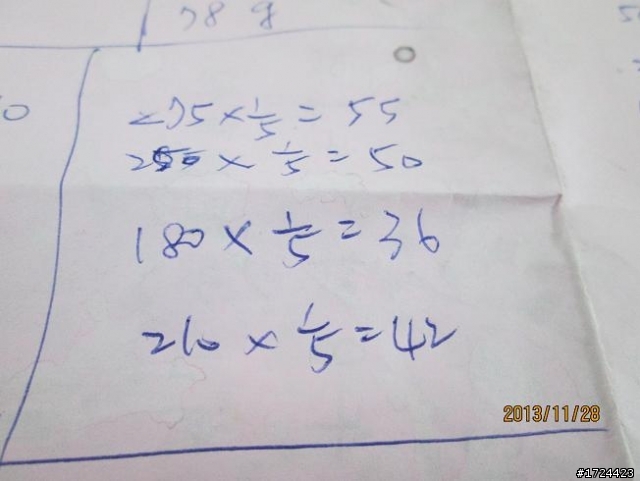 78 g
275 × 1/5 = 55
250 × 1/5 = 50
180 × 1/5 = 36
210 × 1/5 = 42
2013/11/28
#1724423